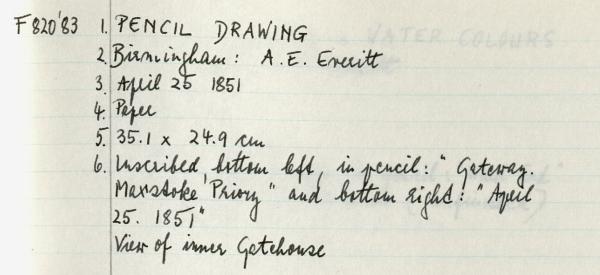 F820'83 1. PENCIL DRAWING
2. Birmingham: A.E. Everitt
3. April 25 1851
4. Paper
5. 35.1 x 24.9 cm
6. Inscribed, bottom left, in pencil: "Gateway.
Maxstoke Priory" and bottom right: "April
25. 1851"
View of inner Gatehouse
WATER COLOURS